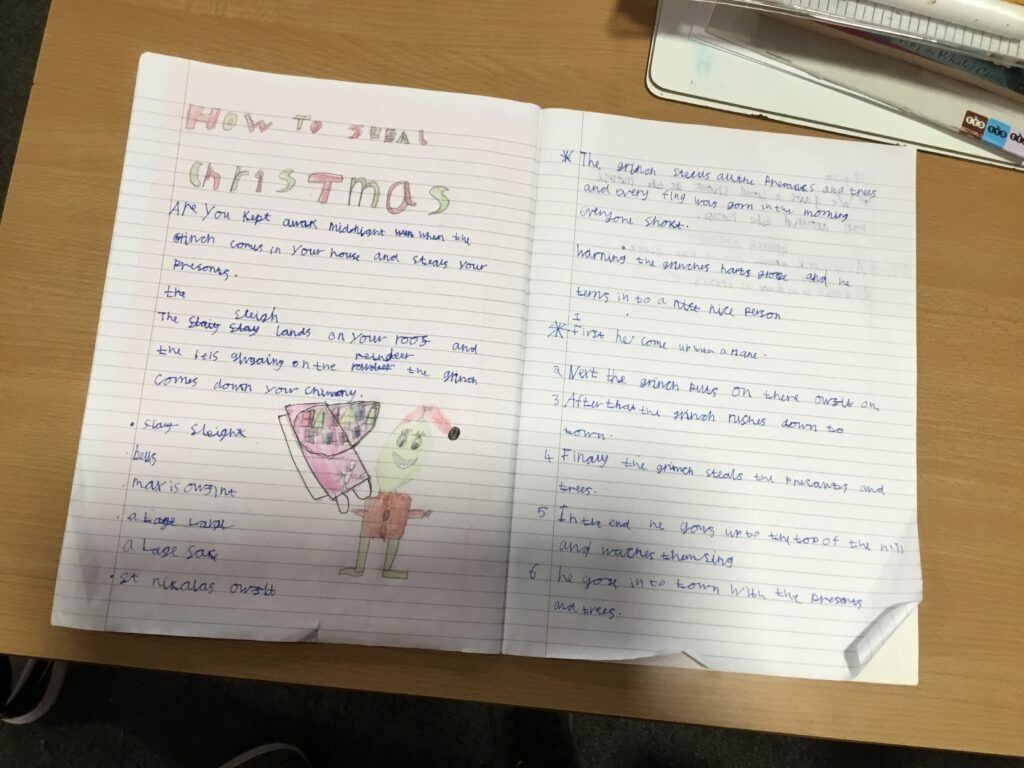 HOW TO STEAL
ChrisTmas
Are You kept awak midnight when the
grinch comes in Your house and steals your
Presents.
the
sleigh
The slay slay lands on your roof and
reindeer
the bels on the the grinch
comes down your chimony.
• slay sleight
• bells
• max is owfint
• a Lage Large
a Lage sac
• st nikolas owflt
* The grinch steals all the Presants and trees
and every fing was gorn in the morning
everyone shokt.
warning the grinches harts grose and he
terns in to a nice Person
1
* First he come up with a Plane.
2 Next the grinch Puts on there owflt on.
3 After that the grinch rushes down to
town.
4 Finaly the grinch steals the Presants and
trees.
5 In the end he gows up to the top of the hill
and waches them sing
6 he gose in to town with the Presents
and trees.